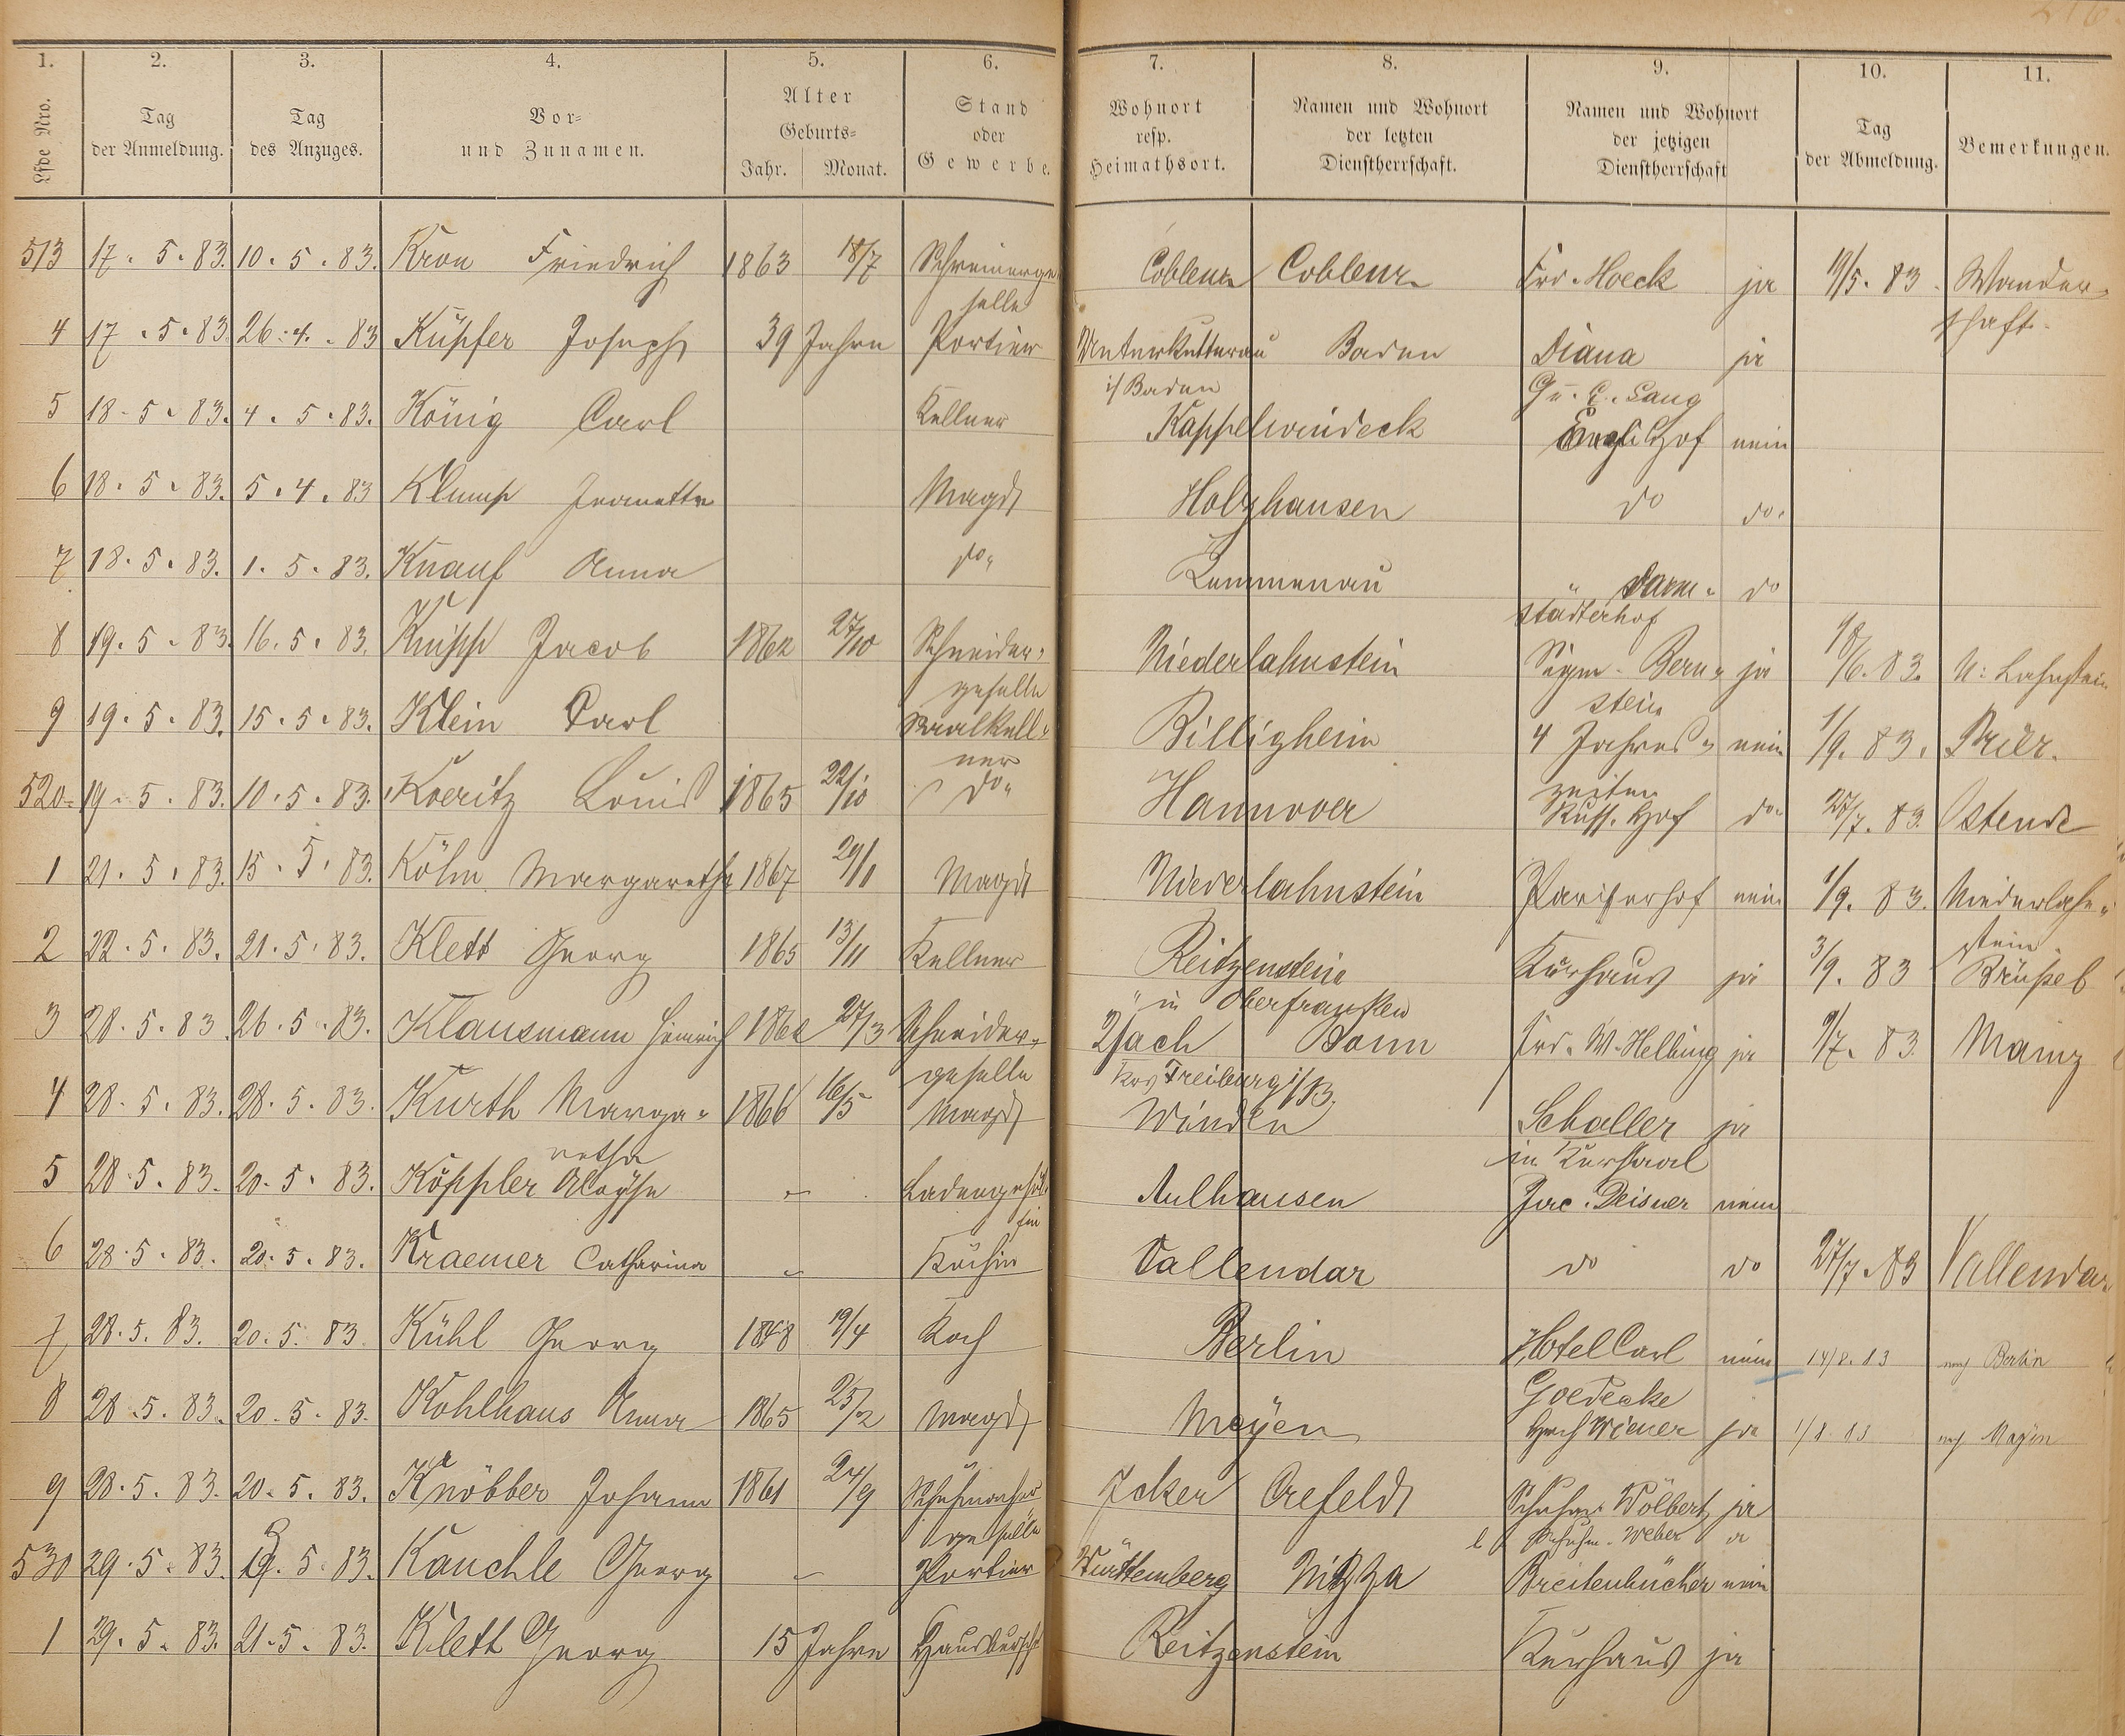 1. 2. 3. 4. 5. 6. 7. 8. 9. 10. 11.
Lfde Nro. Tag der Anmeldung. Tag des Anzuges. Vor- und Zunamen. Alter Geburts- Jahr. Monat. Stand oder Gewerbe. Wohnort resp. Heimathsort. Namen und Wohnort der letzten Dienstherrschaft. Namen und Wohnort der jetzigen Dienstherrschaft Tag der Abmeldung. Bemerkungen.
513 17. 5. 83. 10. 5. 83. Kron Friedrich 1863 18/7 Schreinerge Coblenz Coblenz Frd. Hoeck ja 19/5. 83. Wander-
selle schaft.
4 17. 5. 83. 26. 4. 83 Küpfer Joseph 39 Jahre Portier Baden Diana ja
i/ Baden C. Lang
5 18. 5. 83. 4. 5. 83. König Carl Kellner Kappelwindeck Engl. Hof nein
6 18. 5. 83. 5. 4. 83 Klump Jeanette Magd Holzhausen do do.
7 18. 5. 83. 1. 5. 83. Knauf Anna do. Kemmenau " Darm- do
städterhof
8 19. 5. 83. 16. 5. 83. Knipp Jacob 1862 27/10 Schneider- Niederlahnstein Sigm. Bern- ja 18/6. 83. N: Lahnstein
geselle stein
9 19. 5. 83. 15. 5. 83. Klein Carl Saalkell- Billigheim 4 Jahres- nein 1/9. 83.
ner zeiten
520 19. 5. 83. 10. 5. 83. Koeritz Louis 1865 22/10 do. Hannover Russ. Hof do. 27/7. 83. Ostende
1 21. 5. 83. 15. 5. 83. Köhn Margaretha 1867 29/11 Magd Niederlahnstein Pariserhof nein 1/9. 83. Niederlahn-
stein.
2 22. 5. 83. 21. 5. 83. Klett Georg 1865 13/11 Kellner Reitzenstein Kurhaus ja 3/9. 83 Brüssel
" in Oberfranken
3 28. 5. 83. 26. 5. 83. Klausmann Heinrich 1862 27/3 Schneider- Bonn Frd. W. Helbing ja 9/7. 83. Mainz
geselle Freiburg i/B.
4 28. 5. 83. 28. 5. 83. Kurth Marga- 1866 16/5 Magd Winden Schaller ja
retha in Kursaal
5 28. 5. 83. 20. 5. 83. Köppler Aloyse - Ladengehül- Aulhausen Jac. Deisner nein
fin
6 28. 5. 83. 20. 5. 83. Kraemer Catharina - Köchin Vallendar do do 27/7. 83 Vallendar
7 28. 5. 83. 20. 5. 83. Kühl Georg 1848 19/4 Koch Berlin Hotel Carl nein 14/8. 83 nach Berlin
Goedecke
8 28. 5. 83. 20. 5. 83. Kohlhaus Anna 1865 25/2 Magd Meyen Wiener ja 1/8 83 nach Mayen
9 28. 5. 83. 20. 5. 83. Knöbber Johann 1861 24/9 Schuhmacher Icker Crefeld Schuhm. Wölbert ja
geselle Schuhm. Weber
530 29. 5. 83. 19. 5. 83. Kauchle Georg - Portier Württemberg Nizza Breitenbücher nein
1 29. 5. 83. 21. 5. 83. Klett Georg 15 Jahre Hausbursche Reitzenstein Kurhaus ja